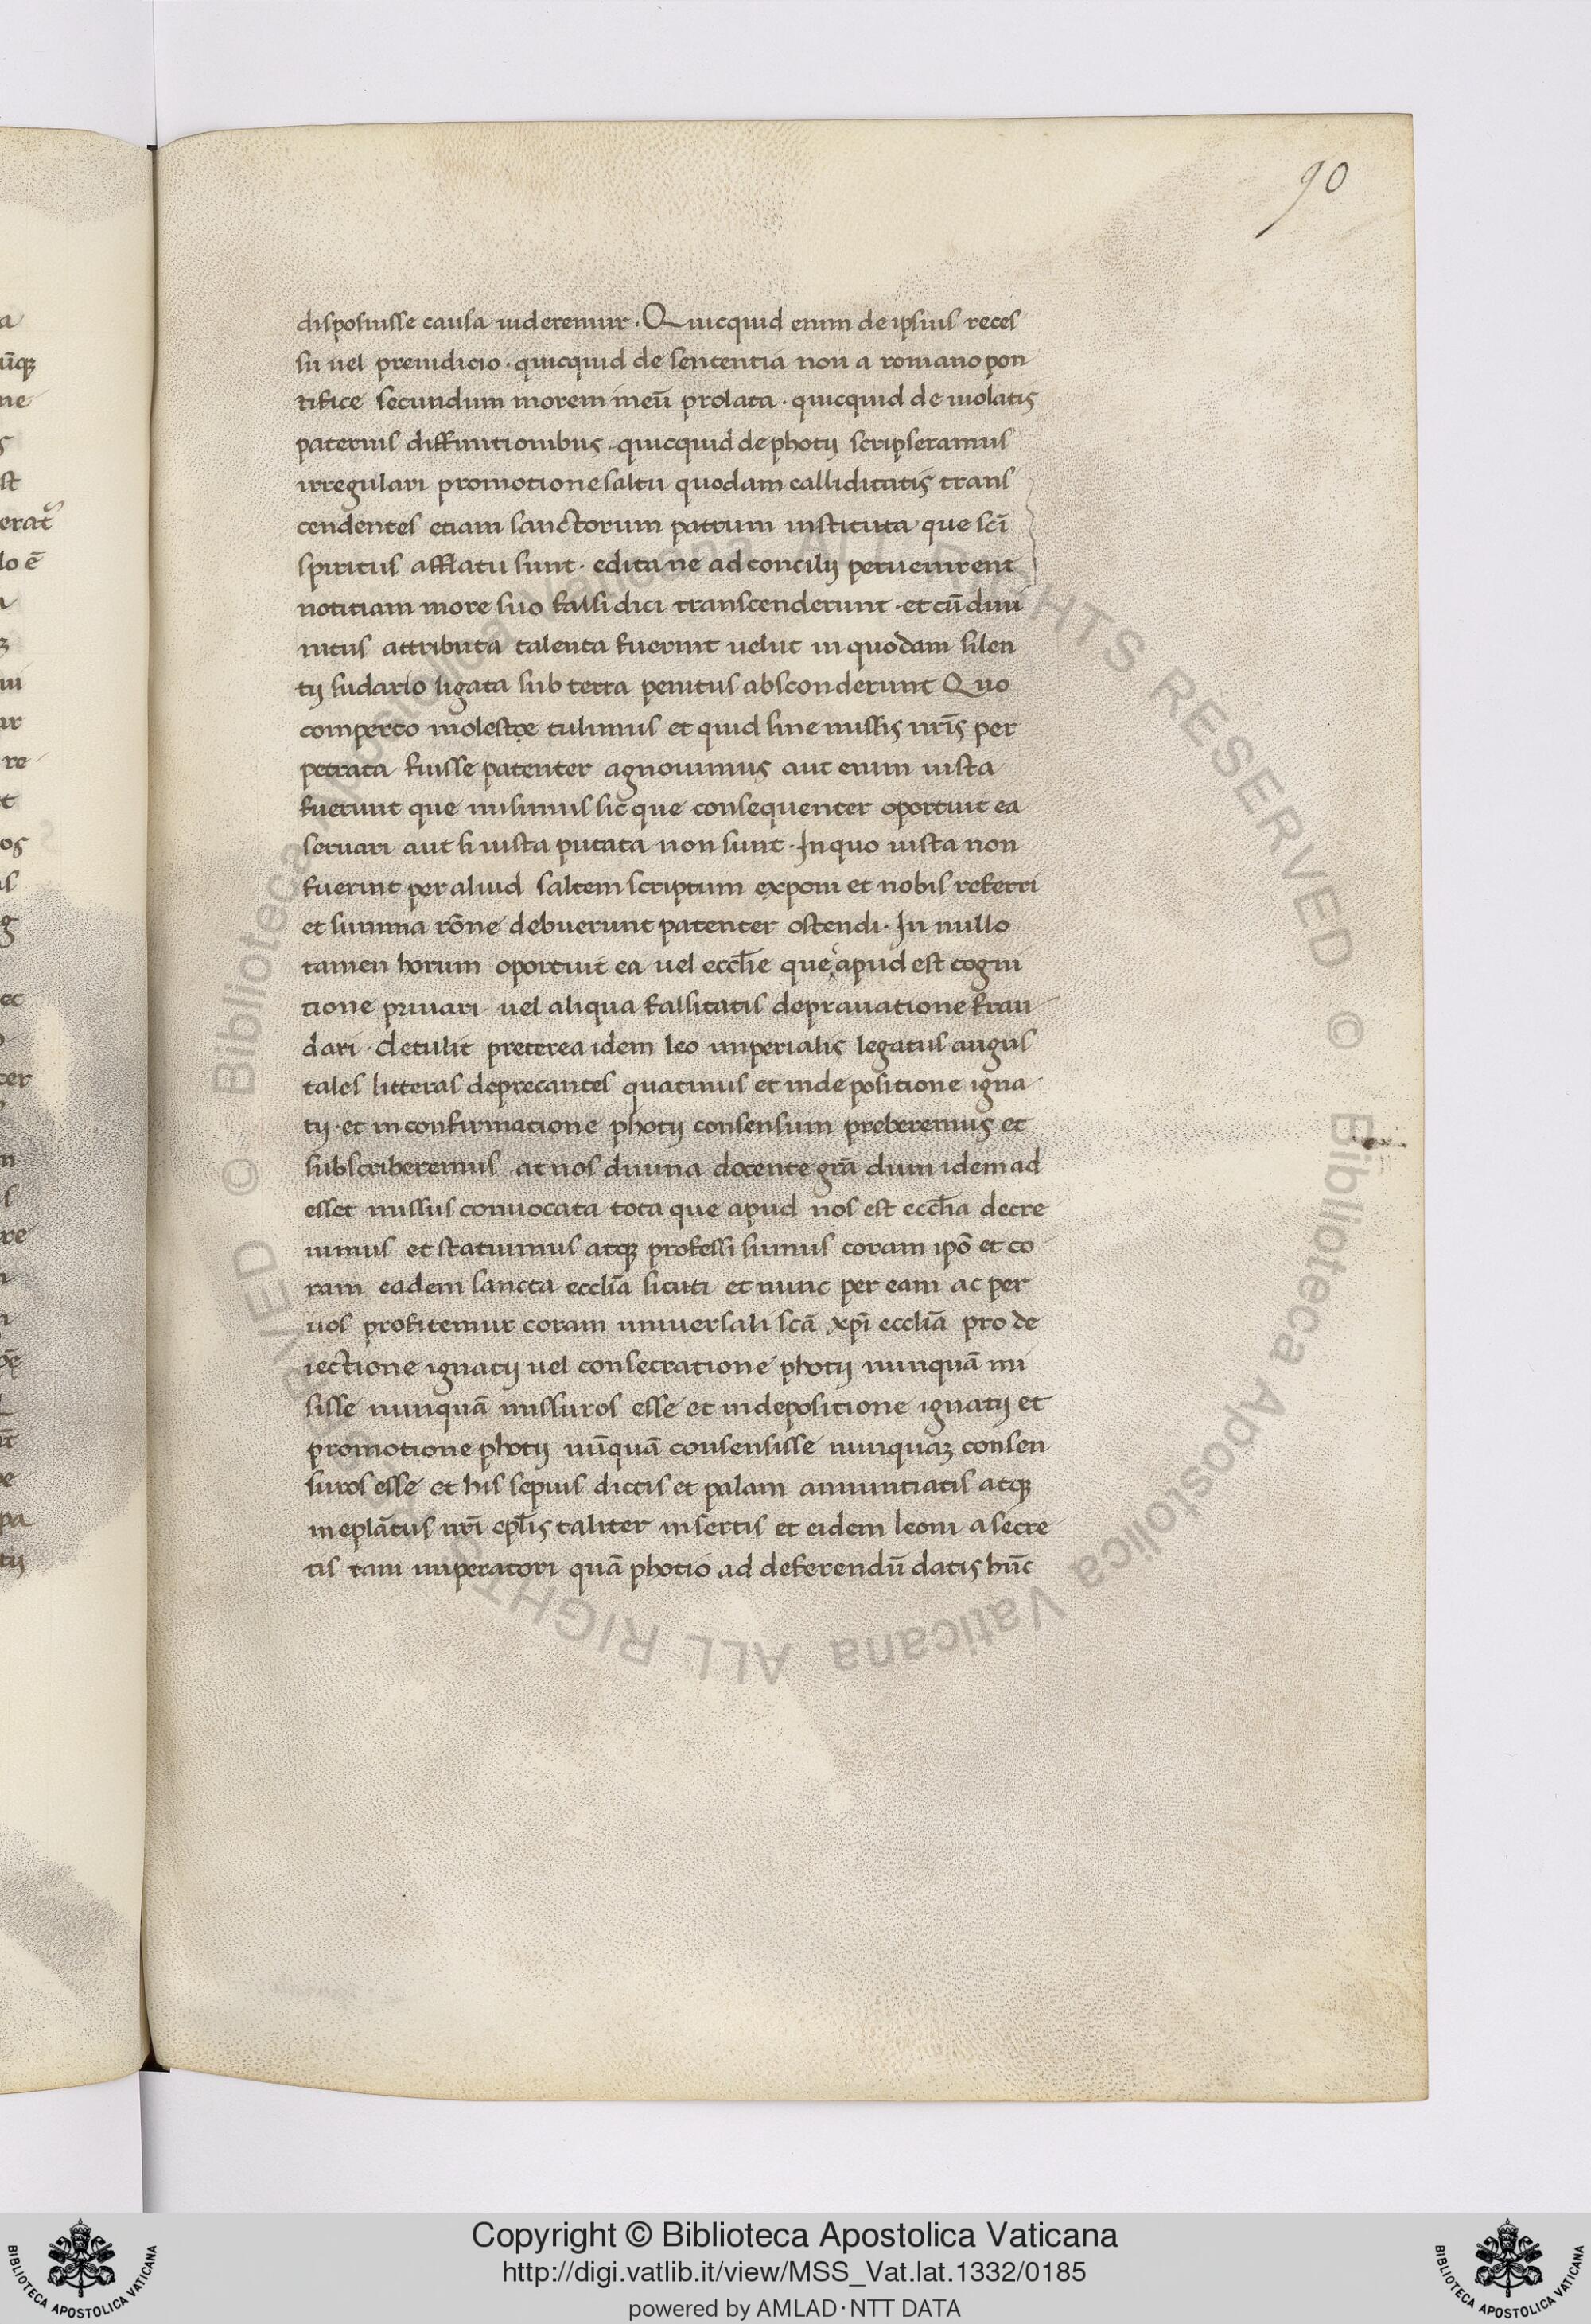 90
disposuisse causa uideremur · Quicquid enim de ipsius reces
su uel preiudicio · quicquid de sententia non a romano pon
tifice secundum morem meū prolata · quicquid de uiolatis
paternis diffinitionibus · quicquid de photij scripseramus
irregulari promotione saltu quodam calliditatis trans
cendentes etiam sanctorum patrum instituta que sc̄i
spiritus afflatu sunt · edita ne ad concilij peruenirent
notitiam more suo falsidici transcenderunt · et cū diui
nitus attributa talenta fuerint uelut in quodam silen
tij sudario ligata sub terra penitus absconderunt Quo
comperto moleste tulimus et quid sine missis nr̄is per
petrata fuisse patenter agnouimus aut enim iusta
fuerunt que misimus sic que consequenter oportuit ea
seruari aut si iusta putata non sunt · In quo iusta non
fuerint per aliud saltem scriptum exponi et nobis referri
et summa rōne debuerunt patenter ostendi · In nullo
tamen horum oportuit ea uel eccl̄ie que apud est cogni
tione priuari · uel aliqua falsitatis deprauatione frau
dari · detulit preterea idem leo imperialis legatus augus
tales litteras deprecantes quatinus et in depositione igna
tij · et in confirmatione photij consensum preberemus et
subscriberemus at nos diuina docente grā dum idem ad
esset missus conuocata tota que apud nos est eccl̄ia decre
uimus et statuimus atqꝫ professi sumus coram ipō et co
ram eadem sancta eccl̄ia sicuti et nunc per eam ac per
uos profitemur coram uniuersali scā xp̄i eccl̄ia pro de
iectione ignatij uel consecratione photij nunquā mi
sisse nunquā missuros esse et in depositione ignatij et
promotione photij nūquā consensisse nunquaꝫ consen
suros esse et his sepius dictis et palam annuntiatis atqꝫ
in eplāribus nr̄i ep̄lis taliter insertis et eidem leoni a secre
tis tam imperatori quā photio ad deferendū datis hūc
Copyright © Biblioteca Apostolica Vaticana
http://digi.vatlib.it/view/MSS_Vat.lat.1332/0185
powered by AMLAD·NTT DATA